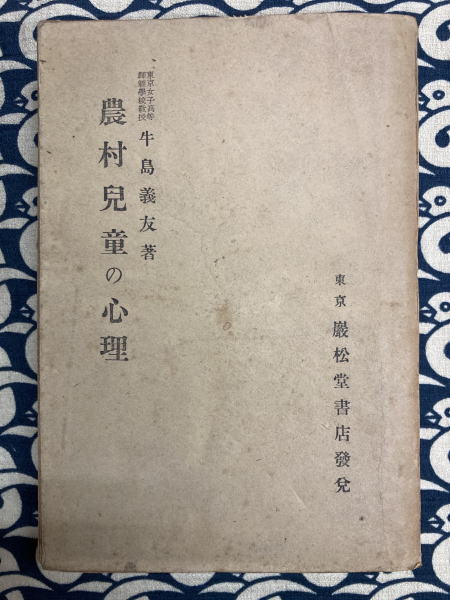 東京 巖松堂書店發兌
東京女子高等
師範學校教授
牛島義友著
農村兒童の心理